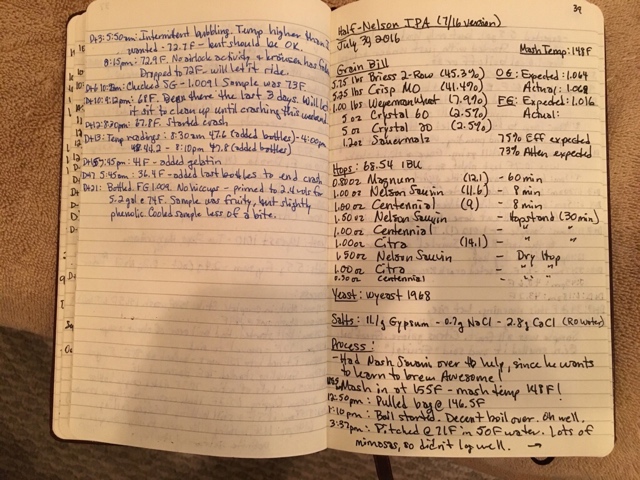 D+3: 5:50am: Intermittent bubbling. Temp higher than I
wanted - 72.7F - but should be OK.
8:15pm: 72.9F. No airlock activity & krausen has
Dropped to 72F - will let it ride.
D+6 10:25am: Checked SG - 1.009! Sample was 73F
D+10: 9:12pm: 68F. Been there the last 3 days. Will let
it sit to clean up until crashing this weekend
D+12: 8:20pm: 67.8F. Started crash
D+13: Temp readings: 8:30am 47.6 (added bottles) - 4:00pm
48.4 - 8:10pm 47.8 (added bottles)
5:45pm: 41F - added gelatin
5:45am: 36.4F - added last bottles to end crash
D+21: Bottled. FG 1.009. No hiccups - primed to 2.4 vols for
5.2 gal @ 74F. Sample was fruity, but slightly
phenolic. Cooled sample less of a bite.
39
Half-Nelson IPA (7/16 version)
July 2016
Mash Temp: 148F
Grain Bill
5.75 lbs Briess 2-Row (45.3%)
5.25 lbs Crisp MO (41.4%)
1.00 lbs Weyermann Wheat (7.9%)
5 oz Crystal 60 (2.5%)
5 oz Crystal 20 (2.5%)
1.2oz Sauermalz
OG: Expected: 1.064
Actual: 1.068
FG: Expected: 1.016
Actual:
75% Eff expected
73% Atten expected
Hops: 68.54 IBU
0.80oz Magnum (12.1) - 60 min
1.00oz Nelson Sauvin (11.6) - 8 min
1.00oz Centennial (9) - 8 min
1.50oz Nelson Sauvin - Hopstand (30 min)
1.00oz Centennial - " "
1.00oz Citra (14.1) - " "
1.50oz Nelson Sauvin - Dry Hop
1.00oz Citra - " "
0.50oz Centennial - " "
Yeast: Wyeast 1968
Salts: 11.1g Gypsum - 0.7g NaCl - 2.8g CaCl (RO water)
Process:
- Had Nash Sowin over to help, since he wants
to learn to brew. Awesome!
Mash in at 155F - mash temp 148F!
12:50pm: Pulled bag @ 146.5F
1:10pm: Boil started. Decent boil over. Oh well.
3:37pm: Pitched @ 71F in 50F water. Lots of
mimosas, so didn't log well. →